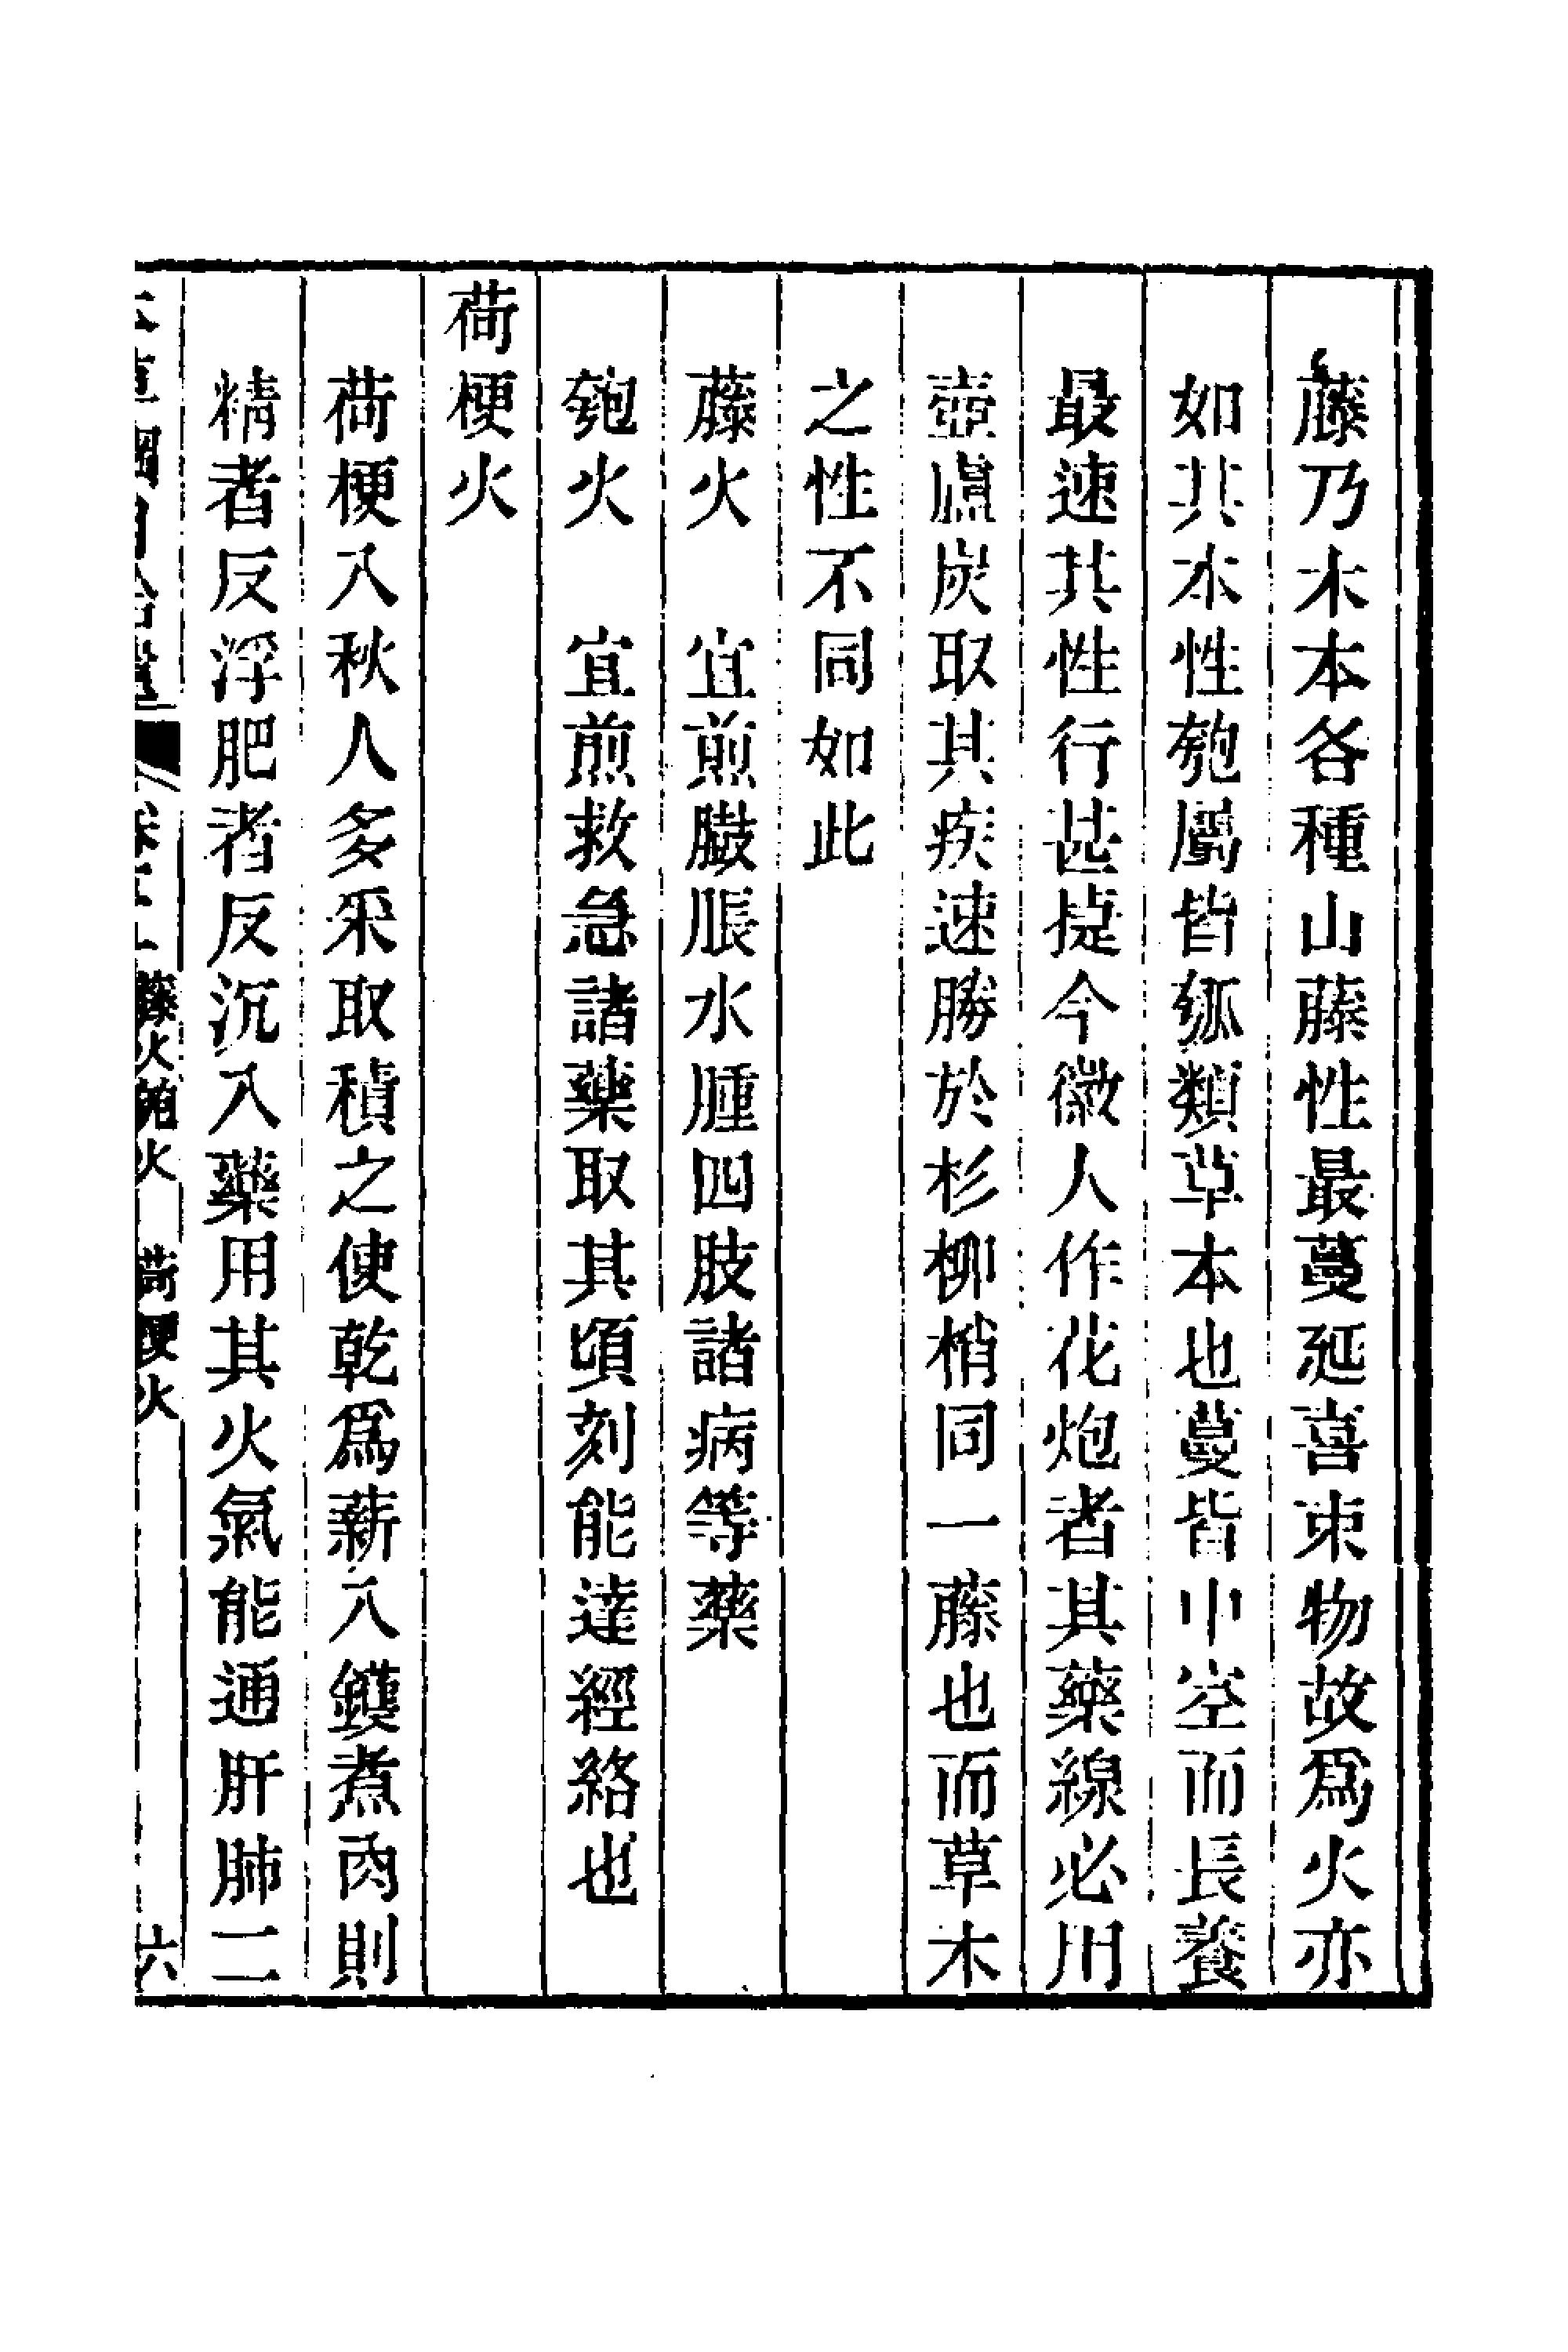 藤乃木本各種山藤性最蔓延喜束物故爲火亦
如其本性匏屬皆瓠類草本也蔓皆中空而長養
最速其性行甚捷今徽人作花炮者其藥線必用
壺盧炭取其疾速勝於杉柳梢同一藤也而草木
之性不同如此
藤火　宜煎臌脹水腫四肢諸病等藥
匏火　宜煎救急諸藥取其頃刻能達經絡也
荷梗火
荷梗入秋人多采取積之使乾爲薪入鑊煮肉則
精者反浮肥者反沉入藥用其火氣能通肝肺二
本草綱目拾遺　卷二　藤火匏火　荷梗火　六